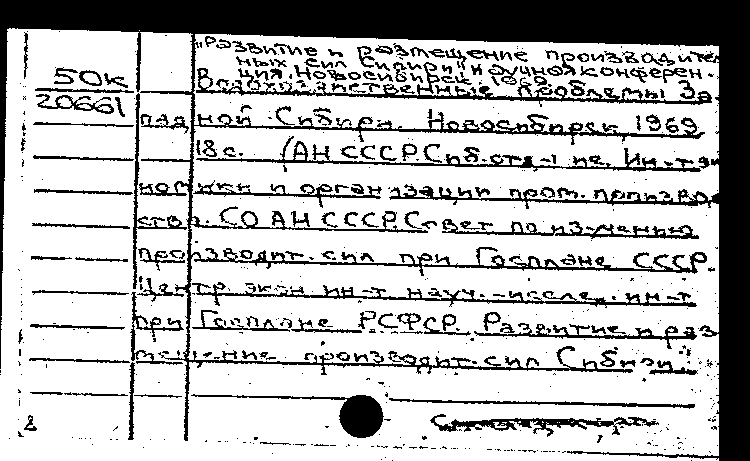 „Развитие и размещение производитель
ных сил Сибири" научная конферен-
ция. Новосибирск, 1969
50К
Водохозяйственные проблемы За-
20661
падной Сибири. Новосибирск, 1969
18 с. (АН СССР. Сиб. отд-ние. Ин-т эко
номики и организации пром. производ
ства. СО АН СССР. Совет по изучению
производит. сил при Госплане СССР.
Центр. экон. ин-т науч.-исслед. ин-т
при Госплане РСФСР. Развитие и раз
мещение производит. сил Сибири".
2